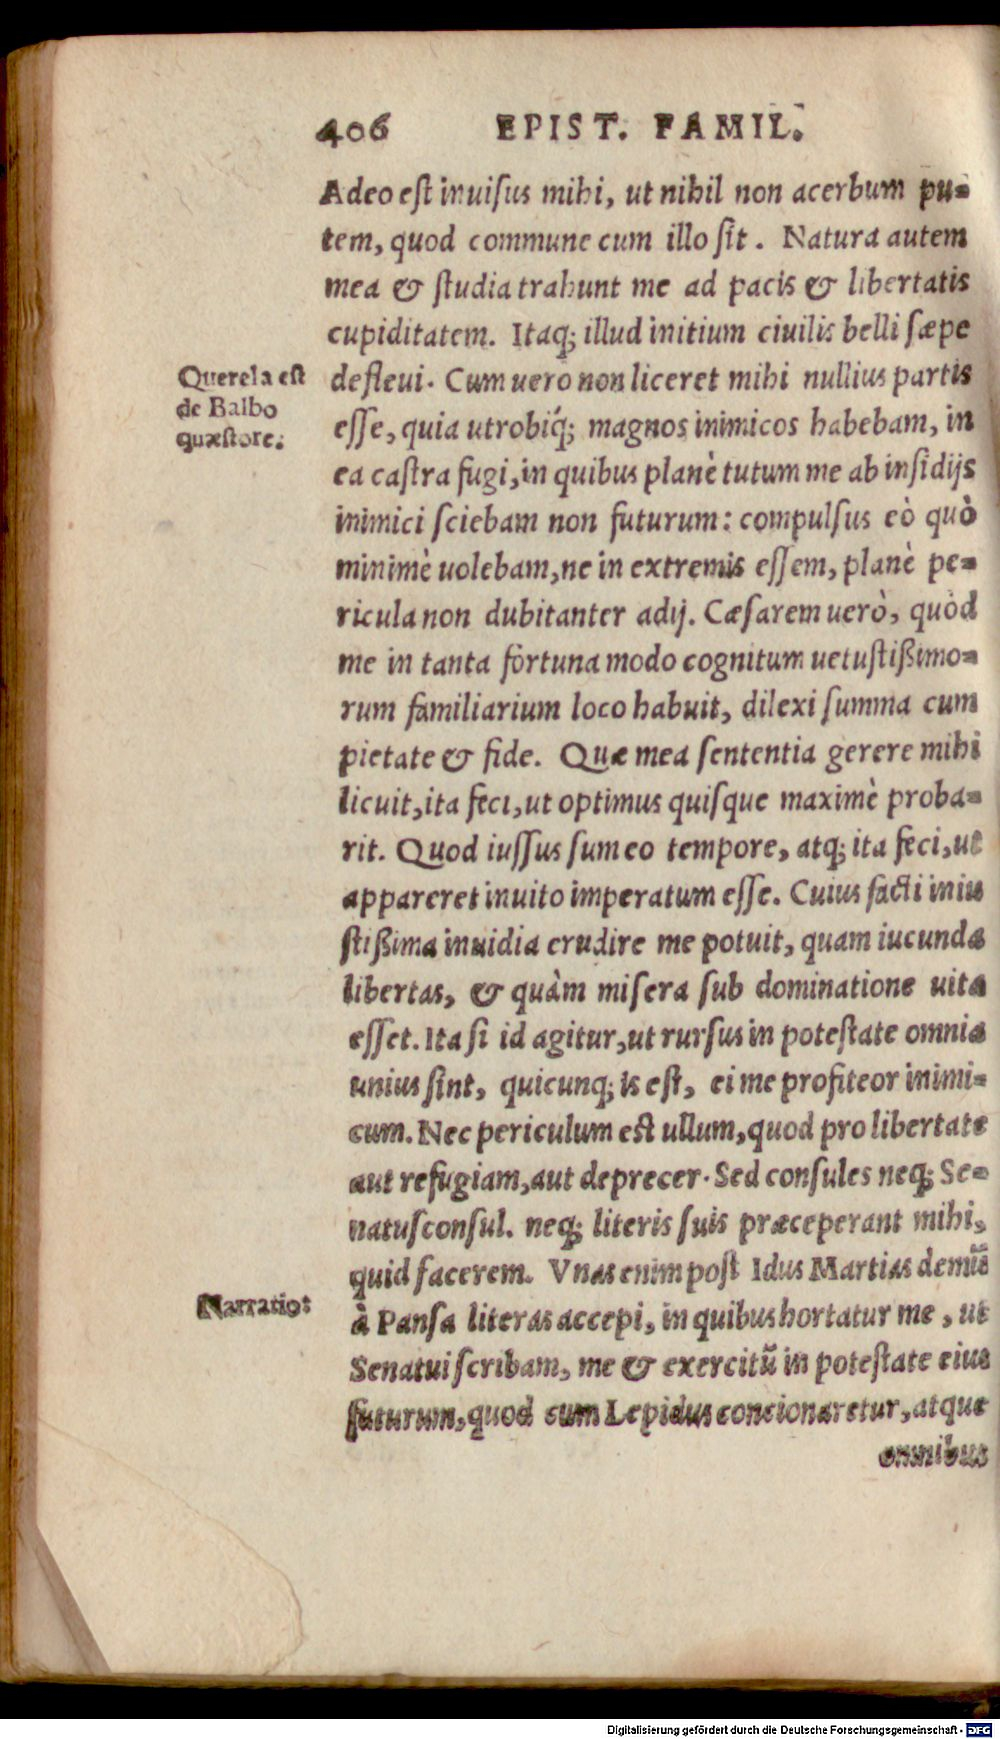 406 EPIST. FAMIL.
Adeo eſt inuiſus mihi, ut nihil non acerbum pu-
tem, quod commune cum illo ſit. Natura autem
mea & ſtudia trahunt me ad pacis & libertatis
cupiditatem. Itaq; illud initium ciuilis belli ſæpe
Querela eſt
de Balbo
quæſtore.
defleui. Cum uero non liceret mihi nullius partis
eſſe, quia utrobiq́; magnos inimicos habebam, in
ea caſtra fugi, in quibus planè tutum me ab inſidijs
inimici ſciebam non futurum: compulſus eò quò
minimè uolebam, ne in extremis eſſem, planè pe-
ricula non dubitanter adij. Cæſarem uerò, quòd
me in tanta fortuna modo cognitum uetuſtißimo-
rum familiarium loco habuit, dilexi ſumma cum
pietate & fide. Quæ mea ſententia gerere mihi
licuit, ita feci, ut optimus quiſque maximè proba-
rit. Quod iuſſus ſum eo tempore, atq; ita feci, ut
appareret inuito imperatum eſſe. Cuius facti iniu
ſtißima inuidia erudire me potuit, quam iucunda
libertas, & quàm miſera ſub dominatione uita
eſſet. Ita ſi id agitur, ut rurſus in poteſtate omnia
unius ſint, quicunq; is eſt, ei me profiteor inimi-
cum. Nec periculum eſt ullum, quod pro libertate
aut refugiam, aut deprecer. Sed conſules neq; Se-
natuſconſul. neq; literis ſuis præceperant mihi,
quid facerem. Vnas enim poſt Idus Martias demũ
Narratio:
à Panſa literas accepi, in quibus hortatur me, ut
Senatui ſcribam, me & exercitũ in poteſtate eius
futurum, quod cum Lepidus concionaretur, atque
omnibus
Digitalisierung gefördert durch die Deutsche Forschungsgemeinschaft - DFG